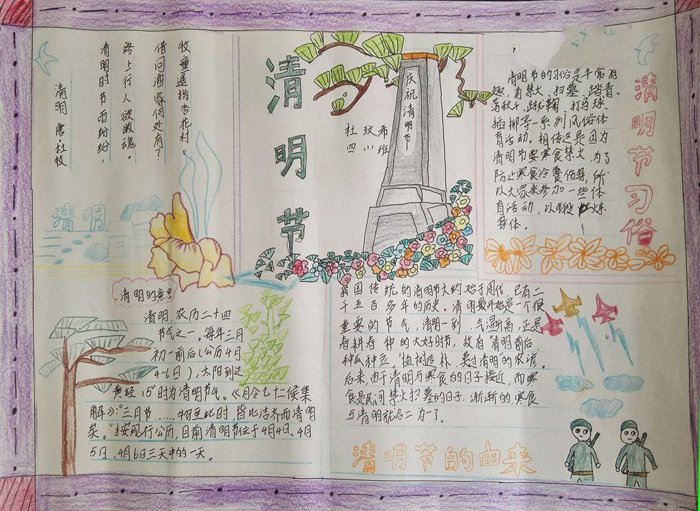 清明 唐 杜牧
清明时节雨纷纷，
路上行人欲断魂。
借问酒家何处有？
牧童遥指杏花村。
清明
清明节
庆祝清明节
杜玫希
四川班
清明节习俗
清明节的习俗是丰富有
趣，有禁火、扫墓、踏青、
荡秋千、蹴鞠、打马球、
插柳等一系列风俗体
育活动。相传这是因为
清明节要寒食禁火，为了
防止寒食冷餐伤身，所
以大家来参加一些体
育活动，以锻炼
身体。
清明的意思
清明，农历二十四
节气之一。每年三月
初一前后(公历4月
4-6日)，太阳到达
黄经15°时为清明节气。《月令七十二候集
解》："三月节……物至此时，皆以洁齐而清明
矣。"按现行公历，目前清明节位于4月4日、4月
5日、4月6日三天中的一天。
我国传统的清明节大约始于周代，已有二
千五百多年的历史。清明最开始是一个很
重要的节气，清明一到，气温升高，正是
春耕春种的大好时节，故有"清明前后
种瓜种豆。""植树造林，莫过清明"的农谚。
后来，由于清明与寒食的日子接近，而寒
食是民间禁火扫墓的日子，渐渐的，寒食
与清明就合二为一了。
清明节的由来